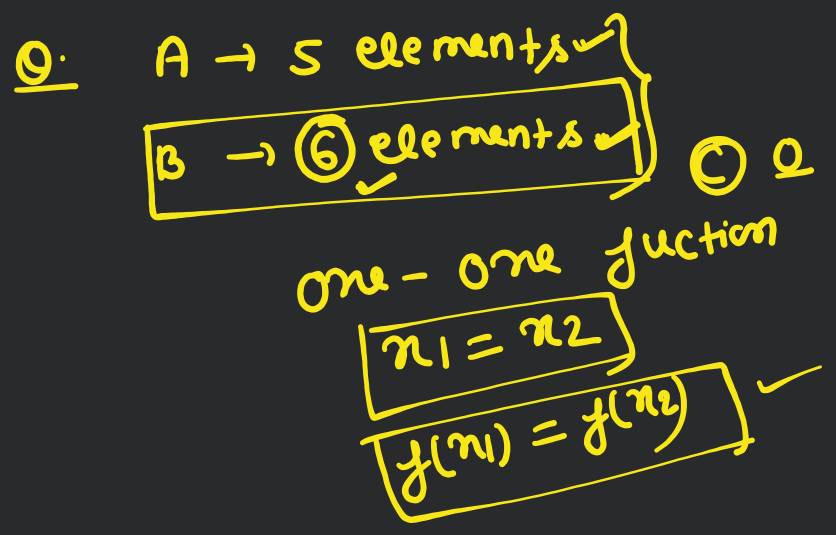 Q. A → 5 elements
B → 6 elements
C Q
one-one fuction
x1 = x2
f(x1) = f(x2)